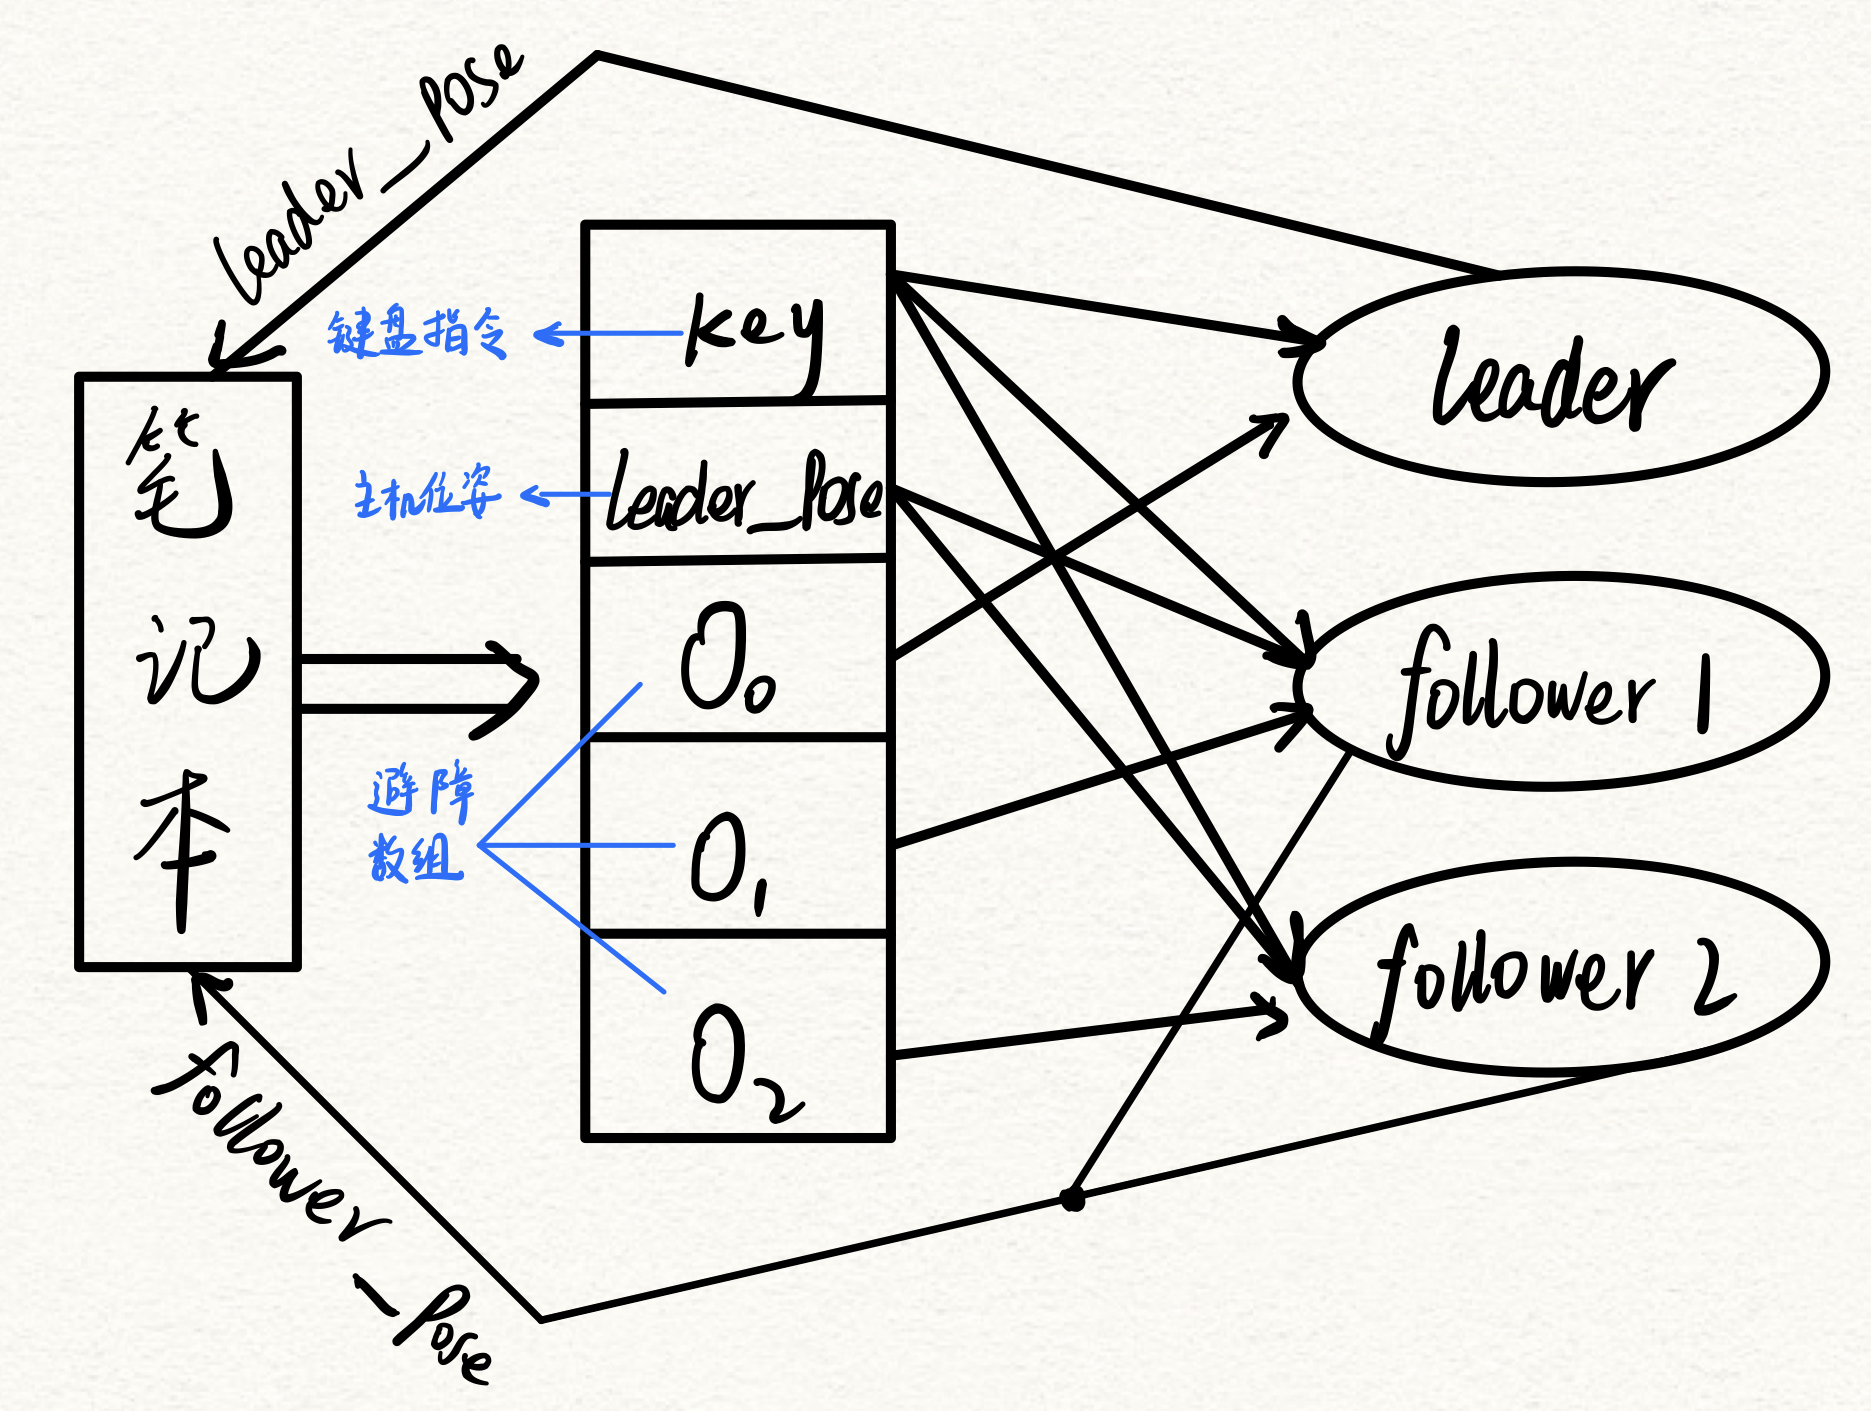 leader_pose
笔记本
键盘指令
key
主机位姿
leader_Pose
O₀
避障
数组
O₁
O₂
leader
follower 1
follower 2
follower
_Pose